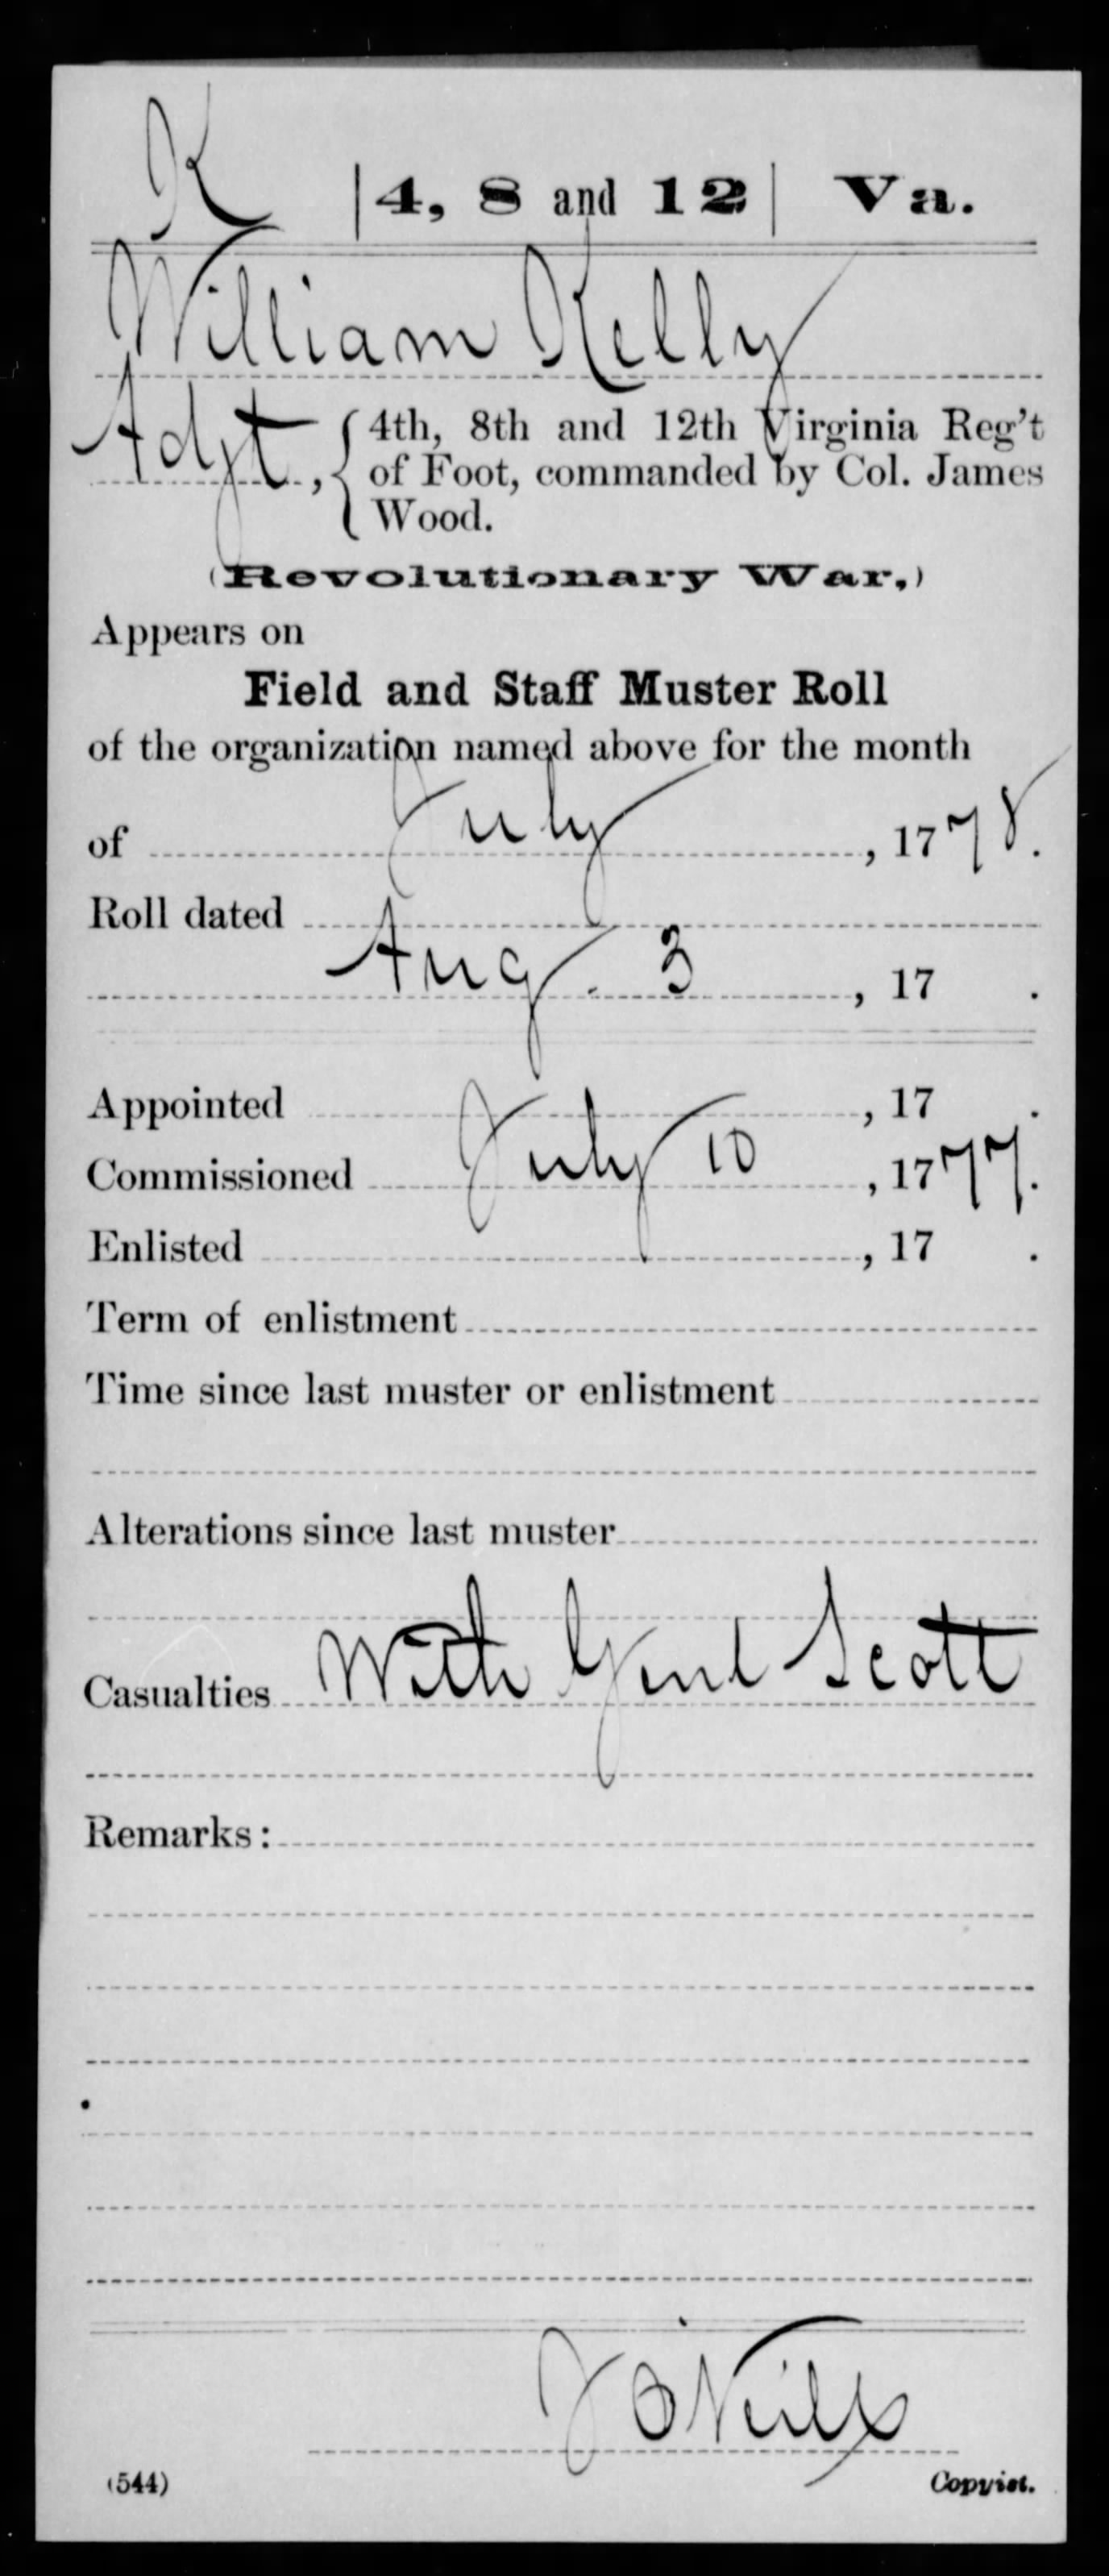 K | 4, 8 and 12 | Va.
William Kelly
Adjt, { 4th, 8th and 12th Virginia Reg't
of Foot, commanded by Col. James
Wood.
(Revolutionary War.)
Appears on
Field and Staff Muster Roll
of the organization named above for the month
of July, 1778.
Roll dated
Aug. 3, 17 .
Appointed , 17 .
Commissioned July 10, 1777.
Enlisted , 17 .
Term of enlistment
Time since last muster or enlistment
Alterations since last muster
Casualties With Genl Scott
Remarks:
J O'Neill
(544) Copyist.